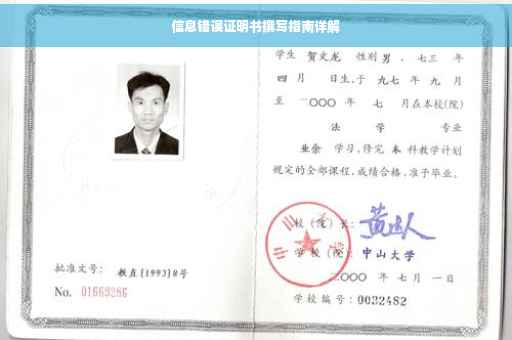 信息错误证明书撰写指南详解
学生 贺文龙 性别 男 、七三 年
四 月 日生,于 九七 年 九 月
至 二〇〇〇 年 七 月在本校(院)
法 学 专业
业余 学习,修完 本 科教学计划
规定的全部课程,成绩合格,准予毕业。
校(院)长:
学校(院): 中山大学
二〇〇〇 年 七 月 一 日
学校编号: 0032482
批准文号: 教直[1993]8号
No. 01669286